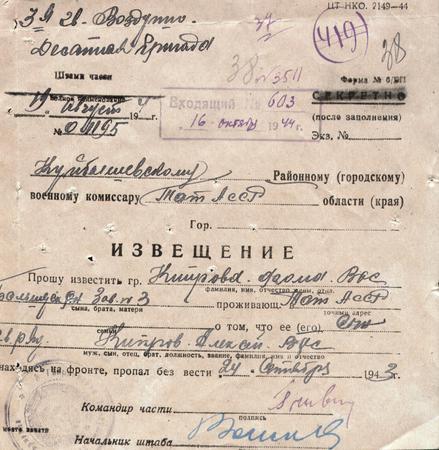 ЦТ НКО. 2149—44
3я Гв. Воздушно-
Десантная бригада
419
38
38 № 3511
Штамп части
Форма № 6/БП
СЕКРЕТНО
19 август 1944 г.
Входящий № 603
(после заполнения)
№ 01195
16 октябр 1944 г.
Экз. №
Куйбышевскому Районному (городскому)
военному комиссару Тат АССР области (края)
Гор.
ИЗВЕЩЕНИЕ
Прошу известить гр.
фамилия, имя, отчество жены, отца,
Зав. № 3 проживающ. Тат АССР
сына, брата, матери
точный адрес
о том, что ее (его) сын
семьи
Алексей
муж, сын, отец, брат, должность, звание, фамилия, имя и отчество
находясь на фронте, пропал без вести 24 1943 г.
Командир части
подпись
место печати
Начальник штаба